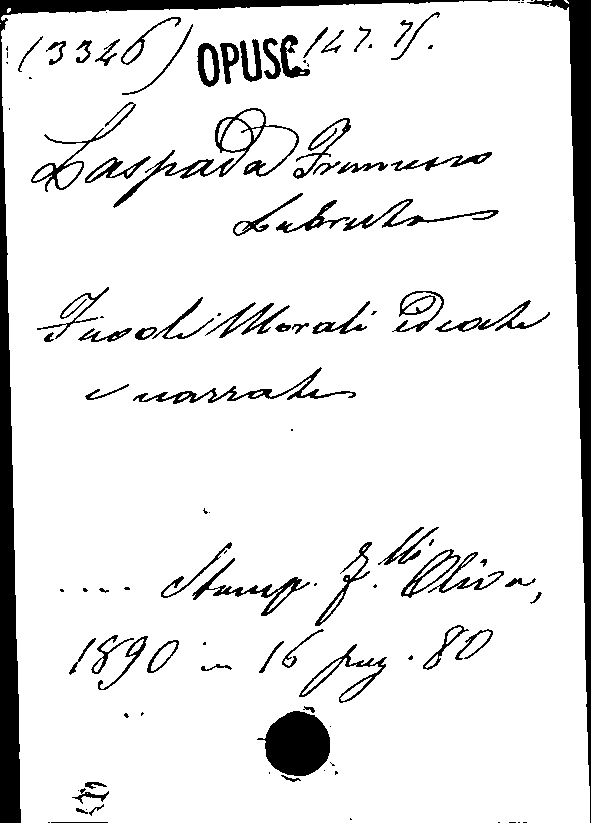 (3346) OPUSC. 147. 75.
Laspada Francesco
Favole Morali ideate
e narrate
.... Stamp. F.lli Oliva,
1890 in 16 pag. 80